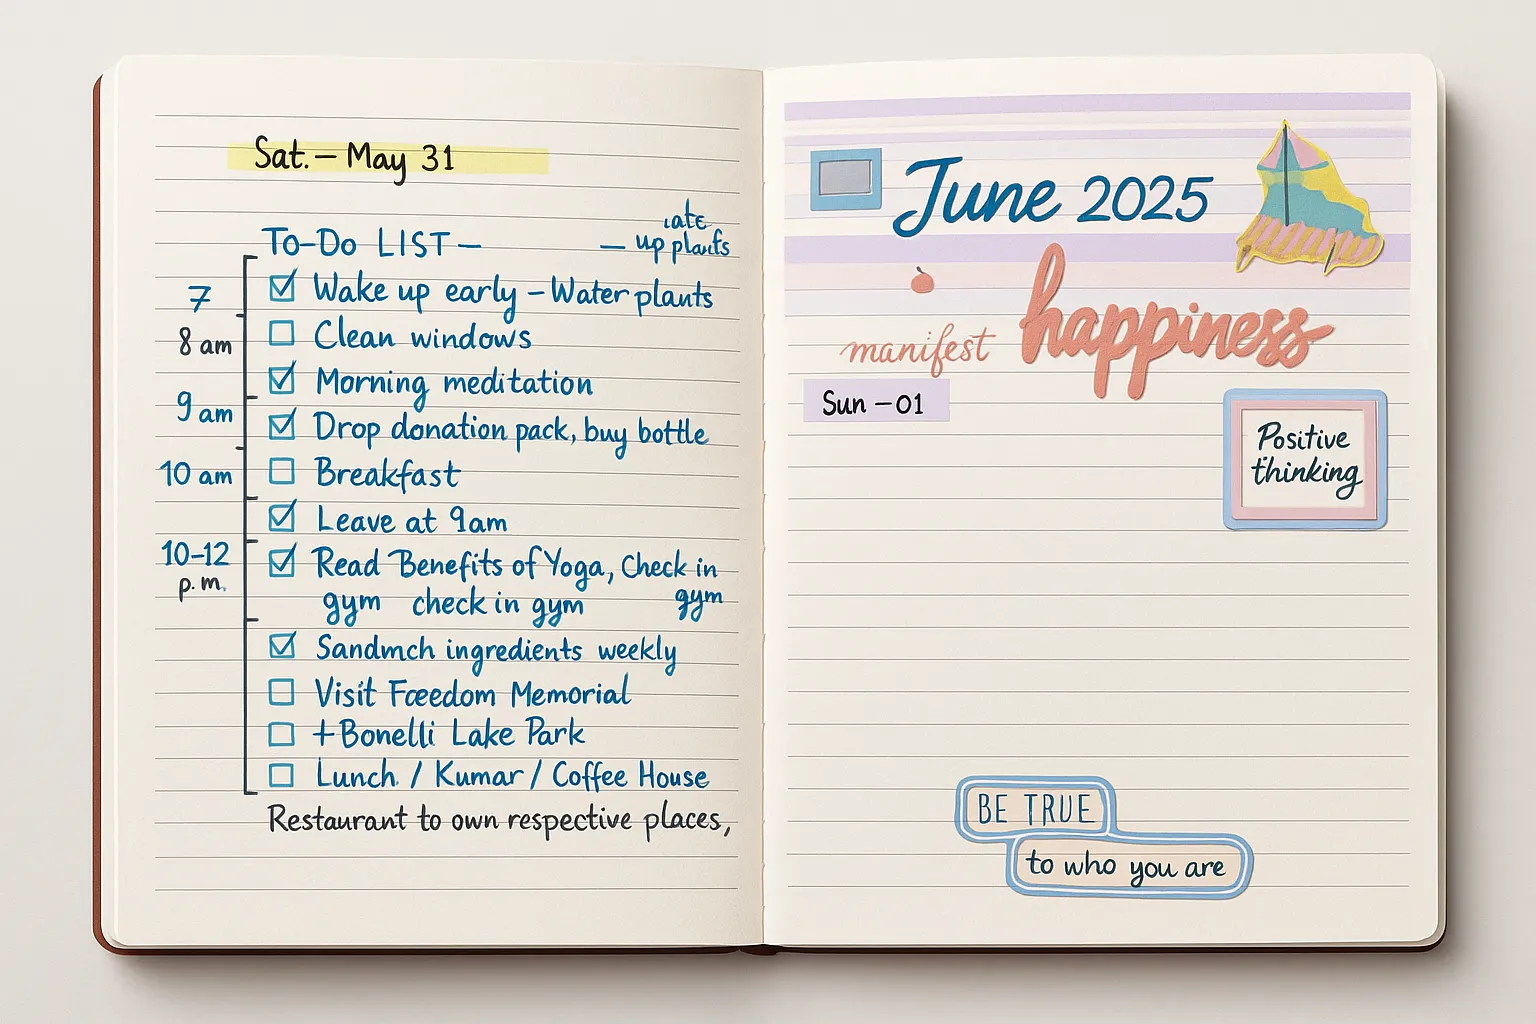 Sat. — May 31
To-Do LIST —
— up plants
7
Wake up early – Water plants
8 am
Clean windows
Morning meditation
9 am
Drop donation pack, buy bottle
10 am
Breakfast
Leave at 9am
10–12
p. m.
Read Benefits of Yoga, Check in
gym check in gym gym
Sandmch ingredients weekly
Visit Foeedom Memorial
+Bonelli Lake Park
Lunch / Kumar / Coffee House
Restaurant to own respective places,
June 2025
manifest happiness
Sun – 01
Positive
thinking
BE TRUE
to who you are